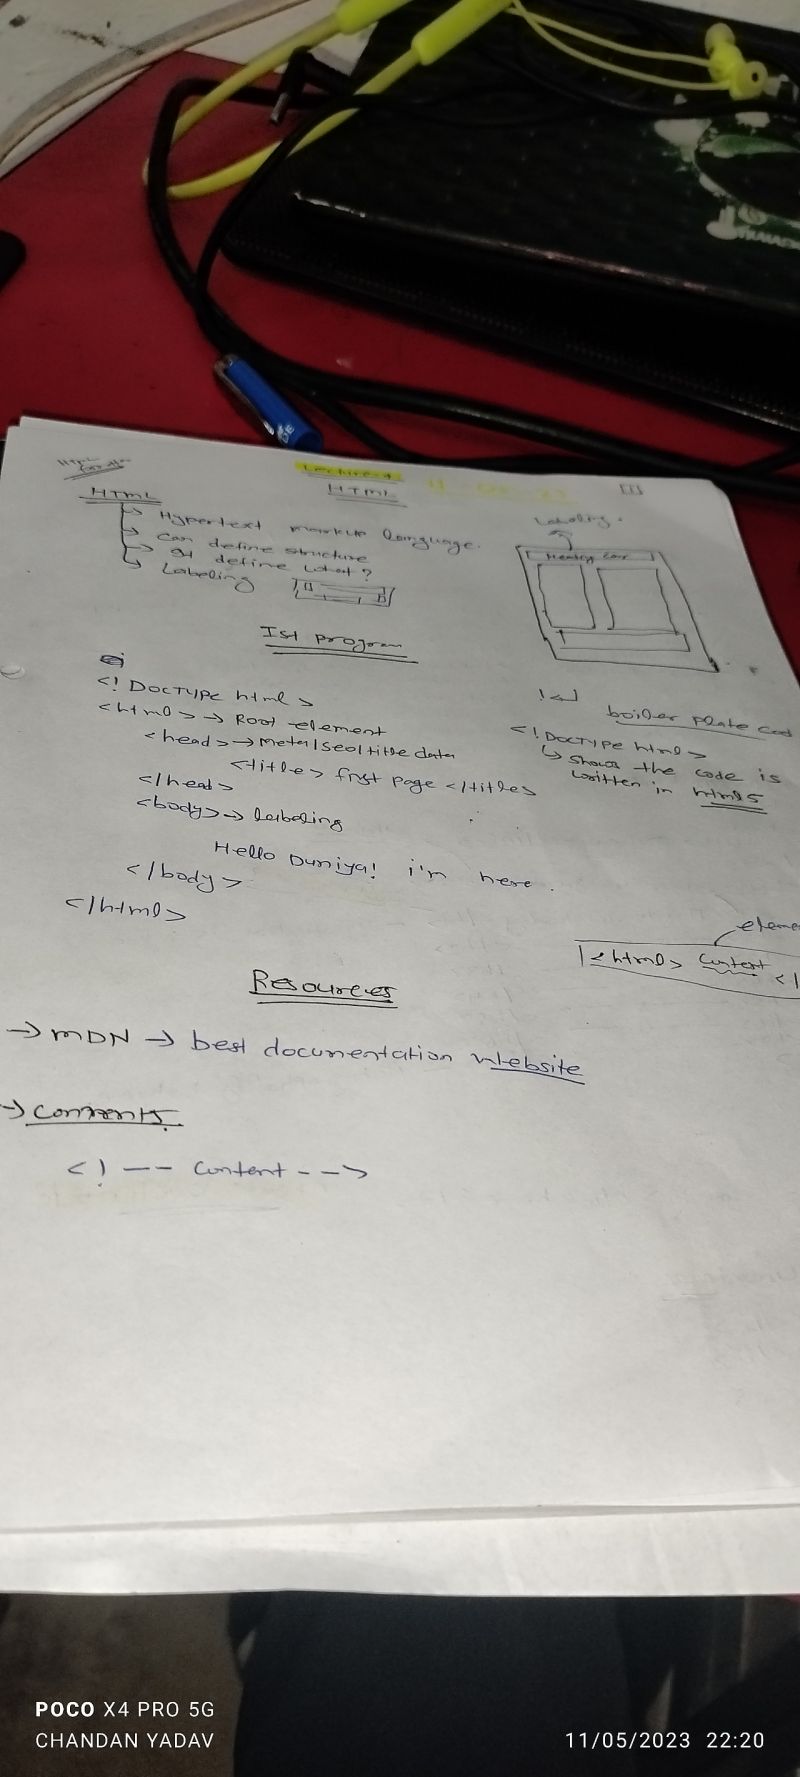 Lecture-4
HTML
[1]
HTML
→ Hypertext markup language.
→ Can define structure
→ It define what?
→ Labeling
Labeling.
1st program
<! DOCTYPE html>
<html> → Root element
<head> → meta/seo/title data
<title> first page </title>
</head>
<body> → labeling
Hello Duniya! i'm here.
</body>
</html>
boiler plate cod
<! DOCTYPE html>
↳ Shows the code is
written in html5
eleme
<html> Content </
Resources
→ MDN → best documentation website
→ Comments
<! -- Content -->
POCO X4 PRO 5G
CHANDAN YADAV
11/05/2023 22:20